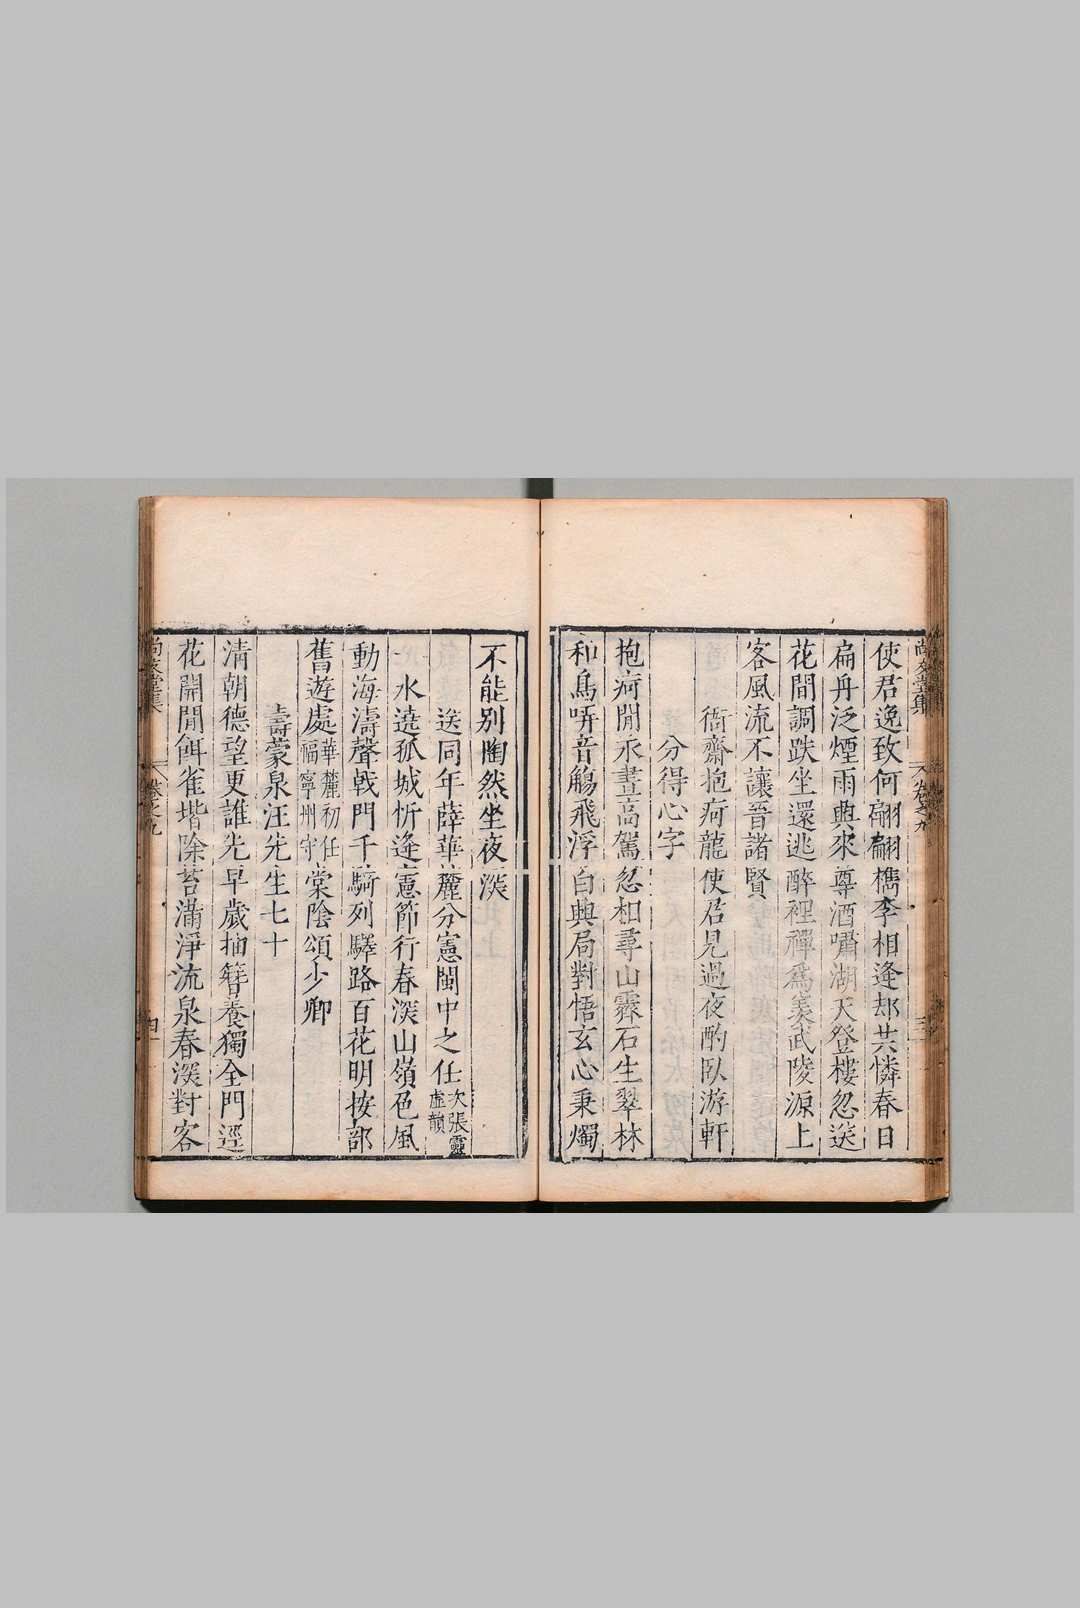 使君逸致何翩翩檇李相逢却共憐春日
扁舟泛煙雨興來尊酒嘯湖天登樓忽送
花間調趺坐還逃醉裡禪為羨武陵源上
客風流不讓晉諸賢
衙齋抱痾龍使君見過夜酌臥游軒
分得心字
抱痾閒永晝高駕忽相尋山霽石生翠林
和鳥哢音觴飛浮白興局對悟玄心秉燭
不能別陶然坐夜深
送同年薛華麓分憲閩中之任次張靈虛韻
一水遶孤城忻逢憲節行春深山嶺色風
動海濤聲戟門千騎列驛路百花明按部
舊遊處華麓初任福寧州守棠陰頌少卿
壽蒙泉汪先生七十
清朝德望更誰先早歲抽簪養獨全門逕
花開閒餌雀堦除苔滿淨流泉春深對客
尚友堂集 卷之九 三
尚友堂集 卷之九 四